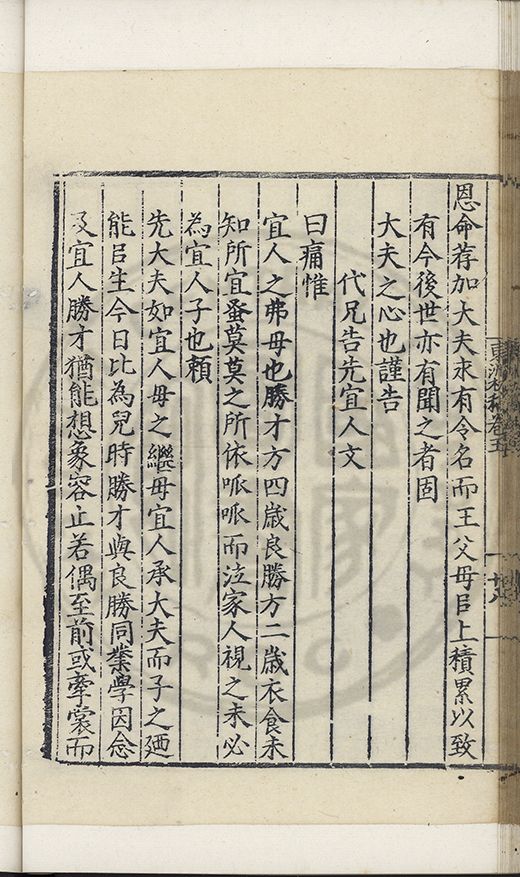 恩命荐加大夫永有令名而王父母㠯上積累以致
有今後世亦有聞之者固
大夫之心也謹告
代兄告先宜人文
曰痛惟
宜人之弗毋也勝才方四歲良勝方二歲衣食未
知所宜蚤莫莫之所依哌哌而泣家人視之未必
為宜人子也賴
先大夫如宜人毋之繼毋宜人承大夫而子之廼
能㠯生今日比為兒時勝才與良勝同業學因念
及宜人勝才猶能想象容止若偶至前或牽裳而
東洲初稿卷五
十八